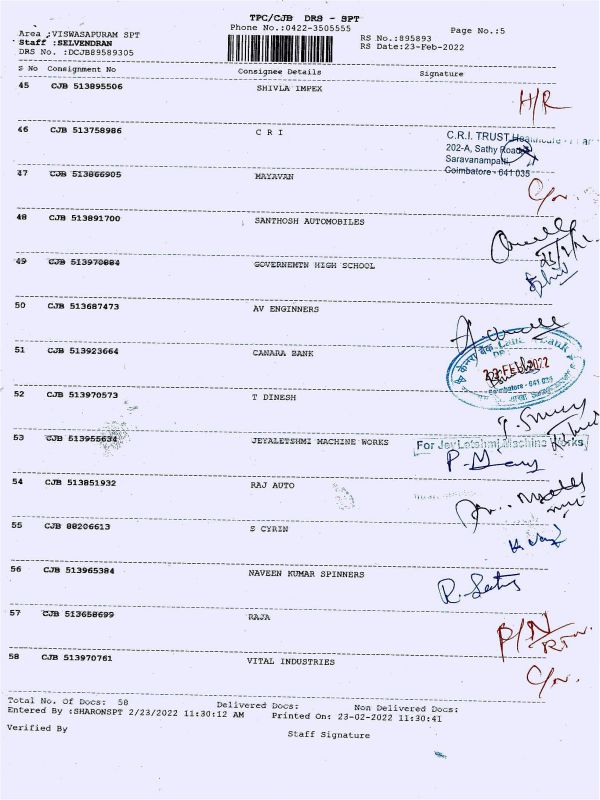 TPC/CJB DRS - SPT
Phone No.:0422-3505555
Page No.:5
Area :VISWASAPURAM SPT
Staff :SELVENDRAN
DRS No. :DCJB89589305
RS No.:895893
RS Date:23-Feb-2022
S No Consignment No Consignee Details Signature
45 CJB 513895506 SHIVLA IMPEX H/R
46 CJB 513758986 C R I
C.R.I. TRUST
202-A, Sathy Road,
Saravanampatti,
Coimbatore - 641 035
47 CJB 513866905 MAYAVAN
48 CJB 513891700 SANTHOSH AUTOMOBILES
49 CJB 513970884 GOVERNEMTN HIGH SCHOOL
50 CJB 513687473 AV ENGINNERS
51 CJB 513923664 CANARA BANK
23 FEB 2022
52 CJB 513970573 T DINESH
53 CJB 513955634 JEYALETSHMI MACHINE WORKS
For Jey Letshmi Machine Works
54 CJB 513851932 RAJ AUTO
55 CJB 88206613 S CYRIN
56 CJB 513965384 NAVEEN KUMAR SPINNERS
57 CJB 513658699 RAJA
58 CJB 513970761 VITAL INDUSTRIES
Total No. Of Docs: 58 Delivered Docs: Non Delivered Docs:
Entered By :SHARONSPT 2/23/2022 11:30:12 AM Printed On: 23-02-2022 11:30:41
Verified By
Staff Signature